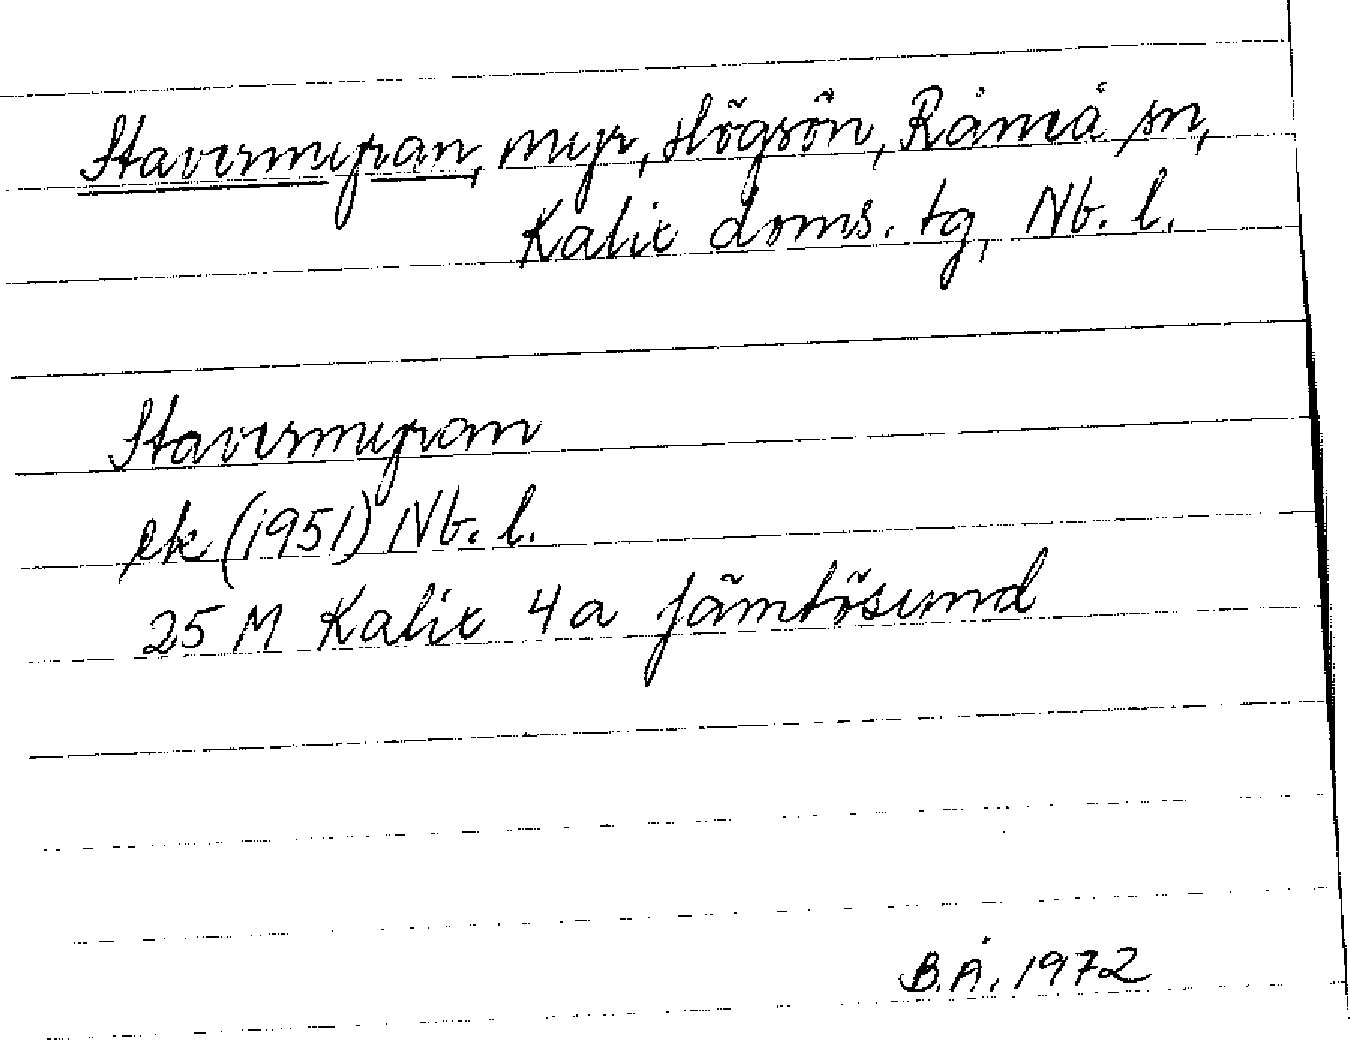 Staversmyran, myr, Högsön, Råneå sn,
Kalix doms. tg, Nb. l.
Staversmyran
ek (1951) Nb. l.
25 M Kalix 4a Jämtösund
B.Å. 1972